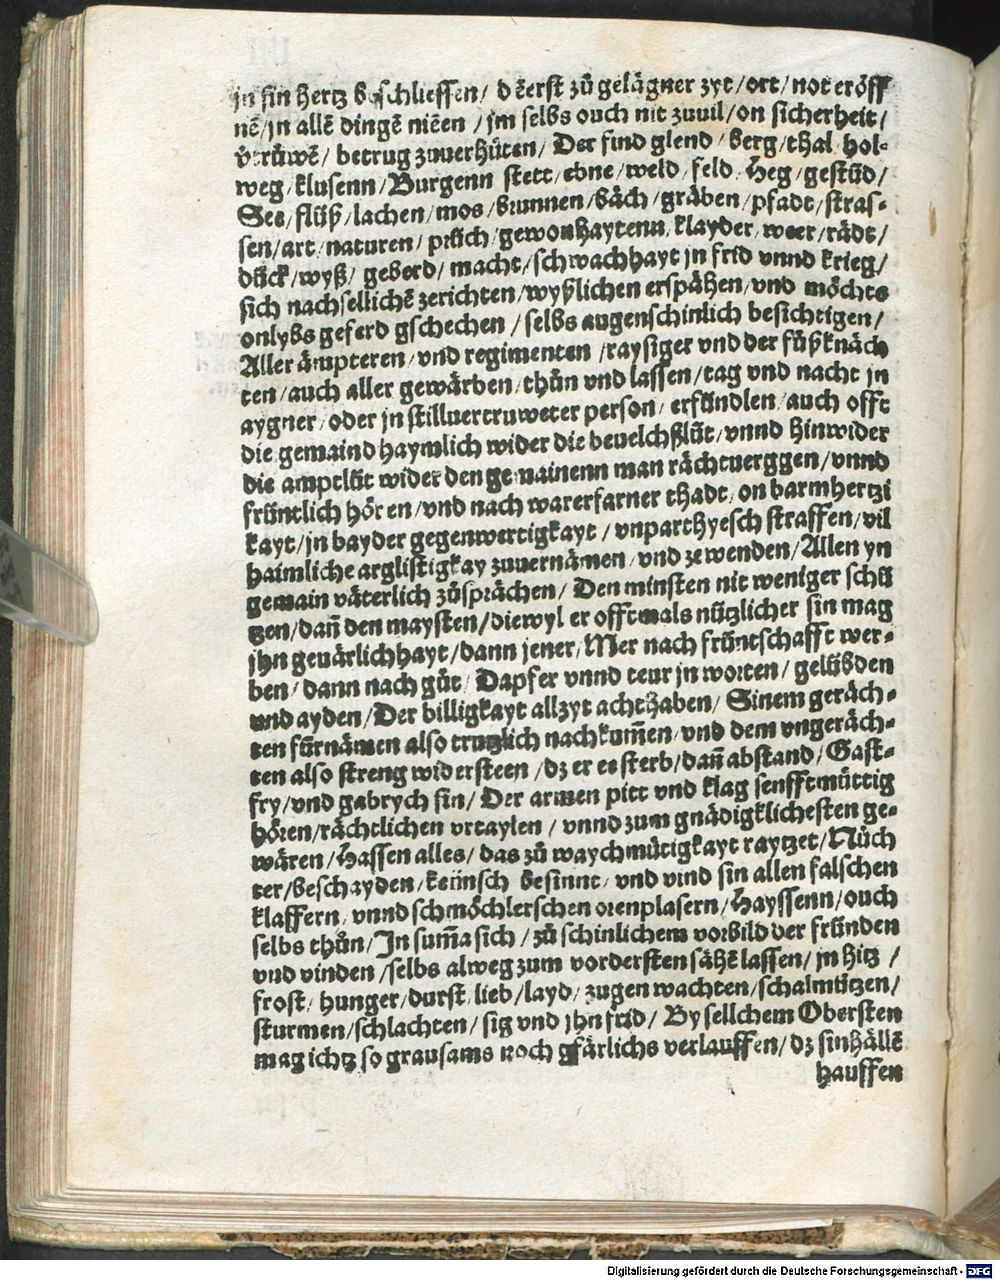 jn sin hertz beschliessen / dëerst zů gelägner zyt / ort / not eröff
nē / jn allē dingē niēen / jm selbs ouch nit zuuil / on sicherheit /
vertrüwē / betrug zuuerhüten / Der find glend / berg / thal hol⸗
weg / klusenn / Burgenn stett / ebne / weld / feld / Heg / gestüd /
See / flüß / lachen / mos / brunnen / bäch / gräben / pfadt / stras⸗
sen / art / naturen / prüch / gewonhaytenn, klayder, weer / rädt /
dück / wyß / geberd / macht / schwachhayt jn frid vnnd krieg /
sich nachsellichē zerichten / wyßlichen erspähen / vnd möchts
onlybs geferd gschechen / selbs augenschinlich besichtigen /
Aller ämpteren / vnd regimenten / raysiger vnd der fůßknäch
ten / auch aller gewärben / thůn vnd lassen / tag vnd nacht jn
aygner / oder jn stilluertruweter person / erfündlen / auch offt
die gemaind haymlich wider die beuelchßlüt / vnnd hinwider
die amptlüt wider den gemainenn man rächtuerggen / vnnd
früntlich hören / vnd nach warerfarner thadt / on barmhertzi
kayt / jn bayder gegenwertigkayt / vnparthyesch straffen / vil
haimliche arglistigkay zuuernämen / vnd ze wenden / Allen yn
gemain väterlich zůsprächen / Den minsten nit weniger schü
tzen / dañ den maysten / diewyl er offtmals nützlicher sin mag
jhn geuärlichhayt / dann jener / Mer nach früntschafft wer⸗
ben / dann nach gůt / Dapfer vnnd teur jn worten / gelübden
und ayden / Der billigkayt allzyt achthaben / Sinem geräch⸗
ten fürnämen also trutzlich nachkum̃en / vnd dem vngeräch⸗
ten also streng widersteen / dz er ee sterb / dañ abstand / Gast⸗
fry / vnd gabrych sin / Der armen pitt vnd klag senfftmüttig
hören / rächtlichen vrtaylen / vnnd zum gnädigklichesten ge⸗
wären / Hassen alles / das zů waychmütigkayt raytzet / Nüch
ter / beschayden / keünsch besinnt / vnd vind sin allen falschen
klaffern / vnnd schmöchlerschen orenplasern / Hayssenn / ouch
selbs thůn / In sum̃a sich / zů schinlichem vorbild der fründen
vnd vinden / selbs alweg zum vordersten sähē lassen / jn hitz /
frost / hunger / durst / lieb / layd / zugen wachten / schalmützen /
sturmen / schlachten / sig vnd jhn frid / By sellchem Obersten
mag ichtz so grausams noch gfärlichs verlauffen / dz sinhällē
hauffen
Digitalisierung gefördert durch die Deutsche Forschungsgemeinschaft - DFG